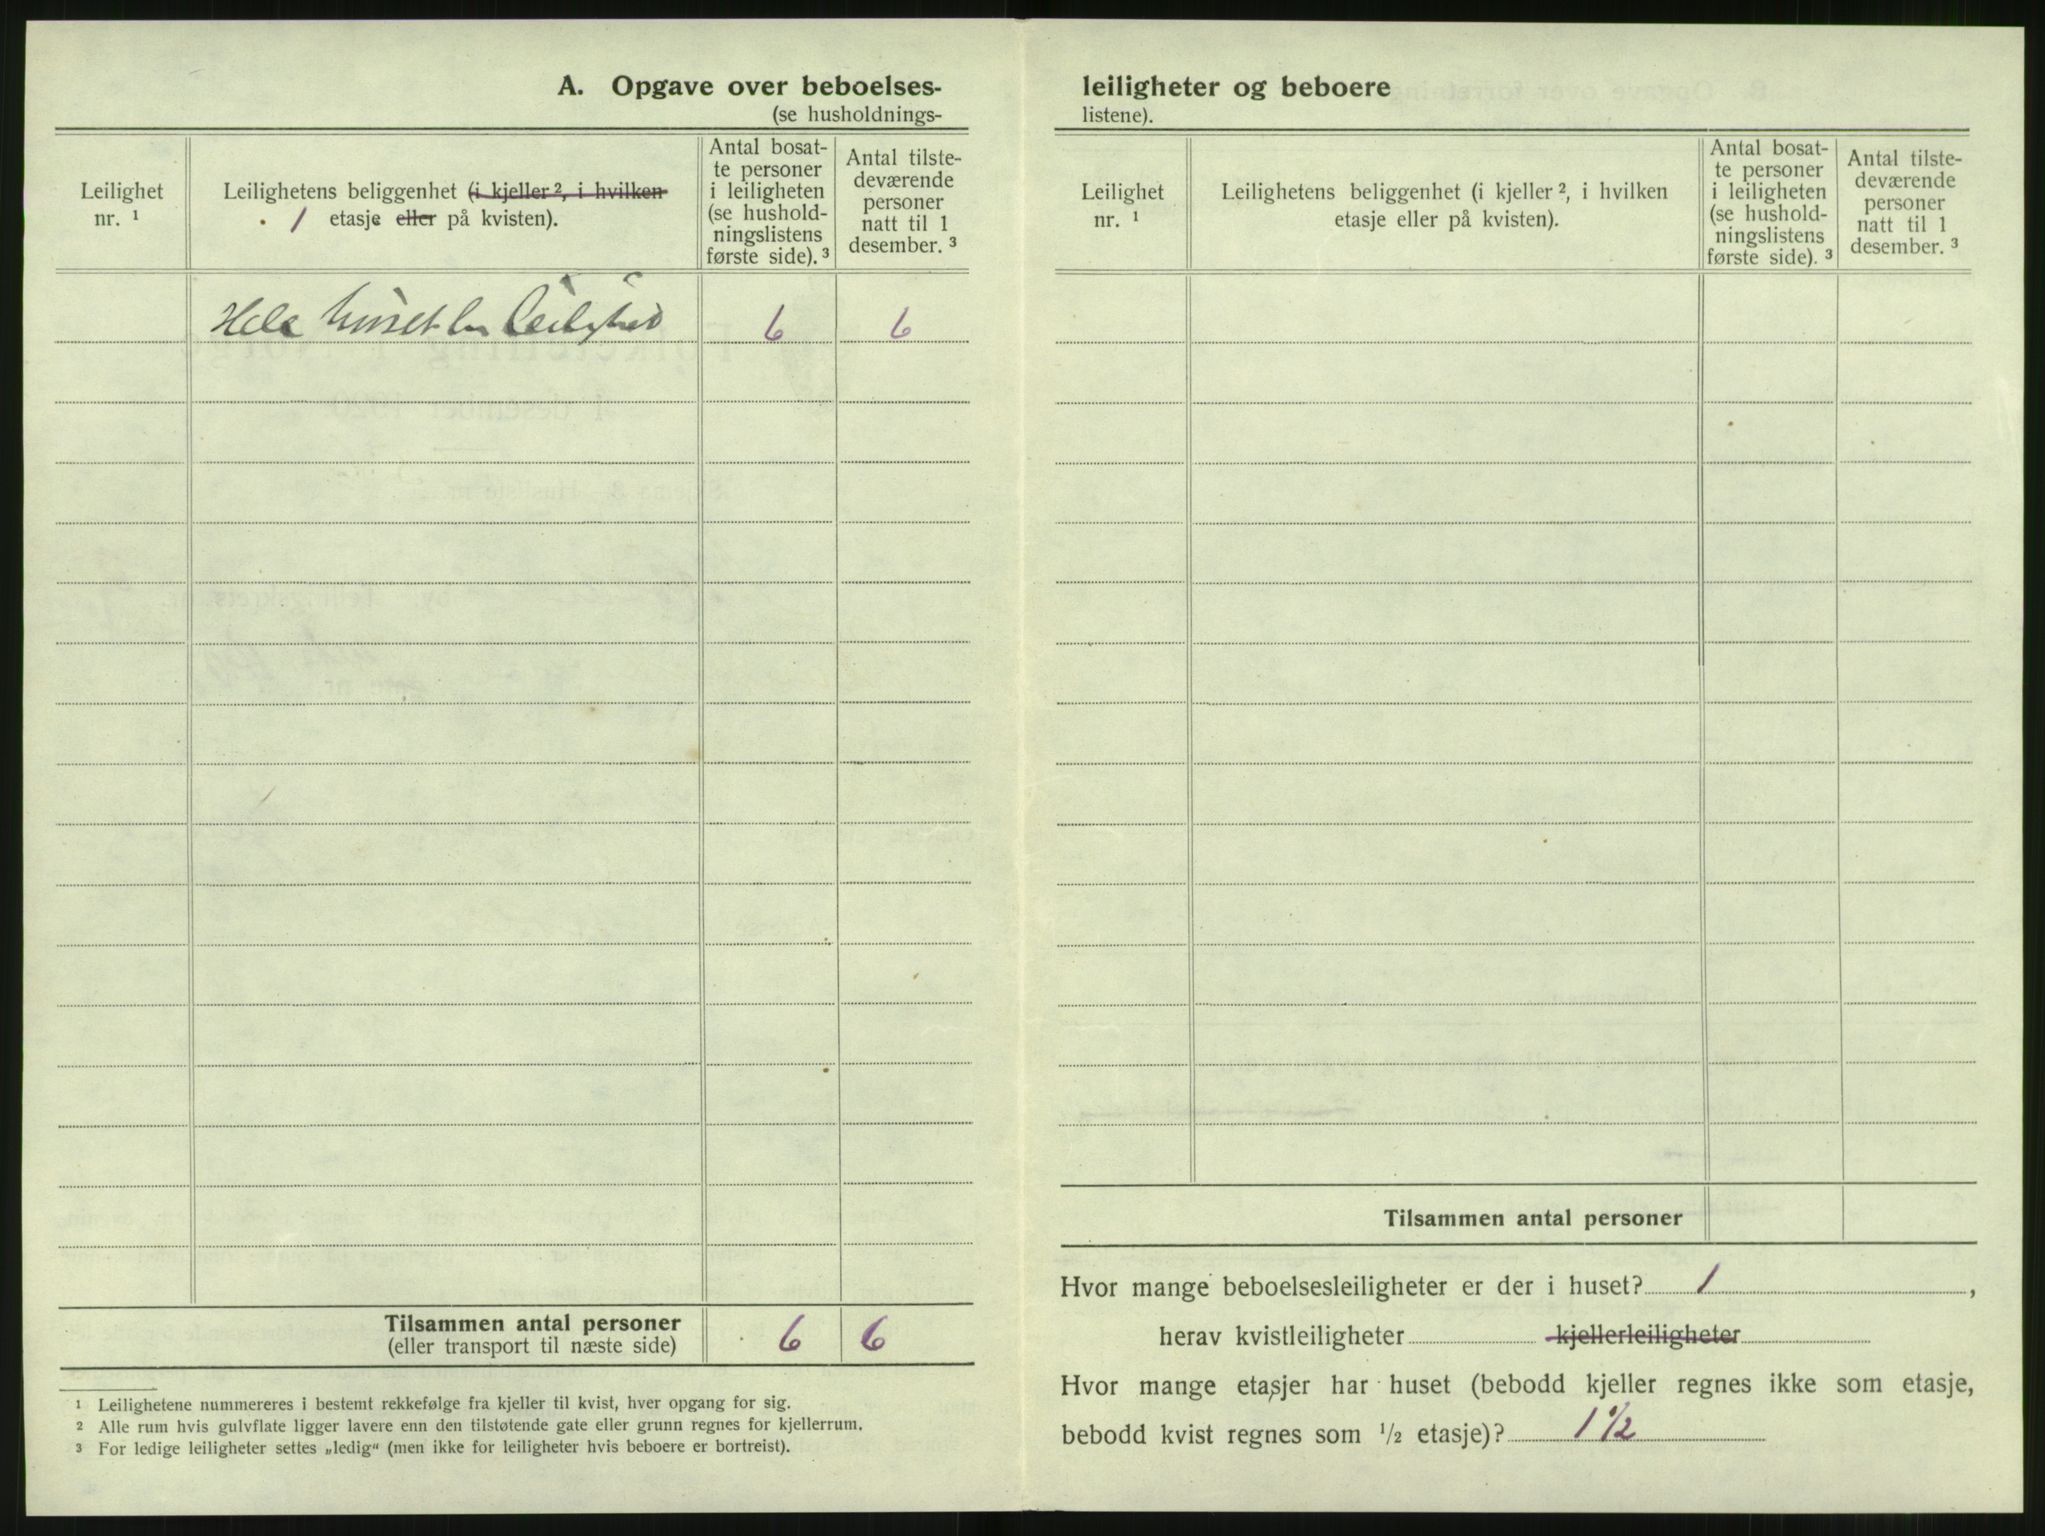 A. Opgave over beboelses-
(se husholdnings-
Leilighet
nr. ¹
Leilighetens beliggenhet (i kjeller ², i hvilken
1 etasje eller på kvisten).
Antal bosat-
te personer
i leiligheten
(se hushold-
ningslistens
første side). ³
Antal tilste-
deværende
personer
natt til 1
desember. ³
Hele huset en Leilighed 6 6
Tilsammen antal personer 6 6
(eller transport til næste side)
¹ Leilighetene nummereres i bestemt rekkefølge fra kjeller til kvist, hver opgang for sig.
² Alle rum hvis gulvflate ligger lavere enn den tilstøtende gate eller grunn regnes for kjellerrum.
³ For ledige leiligheter settes „ledig“ (men ikke for leiligheter hvis beboere er bortreist).
leiligheter og beboere
listene).
Leilighet
nr. ¹
Leilighetens beliggenhet (i kjeller ², i hvilken
etasje eller på kvisten).
Antal bosat-
te personer
i leiligheten
(se hushold-
ningslistens
første side). ³
Antal tilste-
deværende
personer
natt til 1
desember. ³
Tilsammen antal personer
Hvor mange beboelsesleiligheter er der i huset? 1 ,
herav kvistleiligheter kjellerleiligheter
Hvor mange etasjer har huset (bebodd kjeller regnes ikke som etasje,
bebodd kvist regnes som ½ etasje)? 1 ½